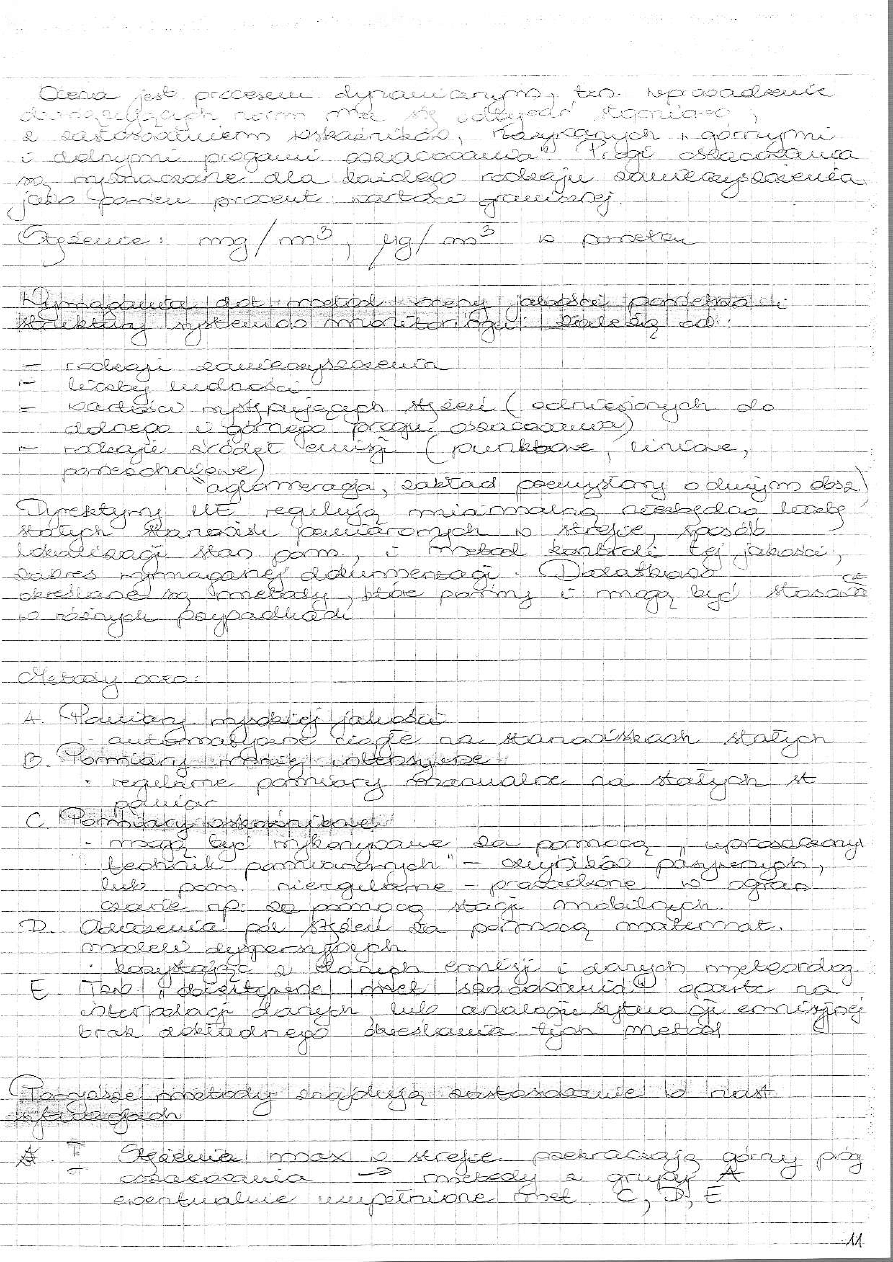 Ocena jest procesem dynamicznym, tzn. wprowadzenie
norm ma się odbywać stopniowo,
z zastosowaniem wskaźników, nazywanych "górnymi
i dolnymi progami oszacowania" Progi oszacowania
są wyznaczane dla każdego rodzaju zanieczyszczenia
jako pewien procent wartości granicznej.
Stężenie: mg/m³, µg/m³ w powietrzu
Wymagania dot metod oceny jakości powietrza i
struktury systemów monitoringu zależą od:
- rodzaju zanieczyszczenia
- liczby ludności
- wartości występujących stężeń (odniesionych do
dolnego i górnego progu oszacowania)
- rodzaju źródeł emisji (punktowe, liniowe,
powierzchniowe)
"aglomeracja, zakład przemysłowy o dużym obsz.)
Dyrektywy UE regulują minimalną niezbędną liczbę
stałych stanowisk pomiarowych w strefie, sposób
lokalizacji stan pom, i metod kontroli tej jakości,
zakres wymaganej dokumentacji. Dodatkowo
określane są metody, które powinny i mogą być stosowane
w różnych przypadkach
Metody ocen:
A. Pomiary wysokiej jakości
- automatyczne ciągłe na stanowiskach stałych
B. Pomiary mniej intensywne
- regularne pomiary manualne na stałych st
pomiar
C. Pomiary wskaźnikowe
- mogą być wykonywane za pomocą "uproszczonych
technik pomiarowych" - czujników pasywnych,
lub pom. nieregularne - prowadzone w ogran
czasie np. za pomocą stacji mobilnych.
D. Obliczenia pól stężeń za pomocą matemat.
modeli dyspersyjnych
- korzystając z danych emisji i danych meteorolog
E Tzw. "obiektywne met szacowania" oparte na
interpolacji danych, lub analogii sytuacji emisyjnej
brak dokładnego określenia tych metod
Powyższe metody znajdują zastosowanie w nast
sytuacjach
A. I Stężenia max w strefie przekraczają górny próg
oszacowania → metody z grupy A
ewentualnie uzupełnione met. C, D, E
11